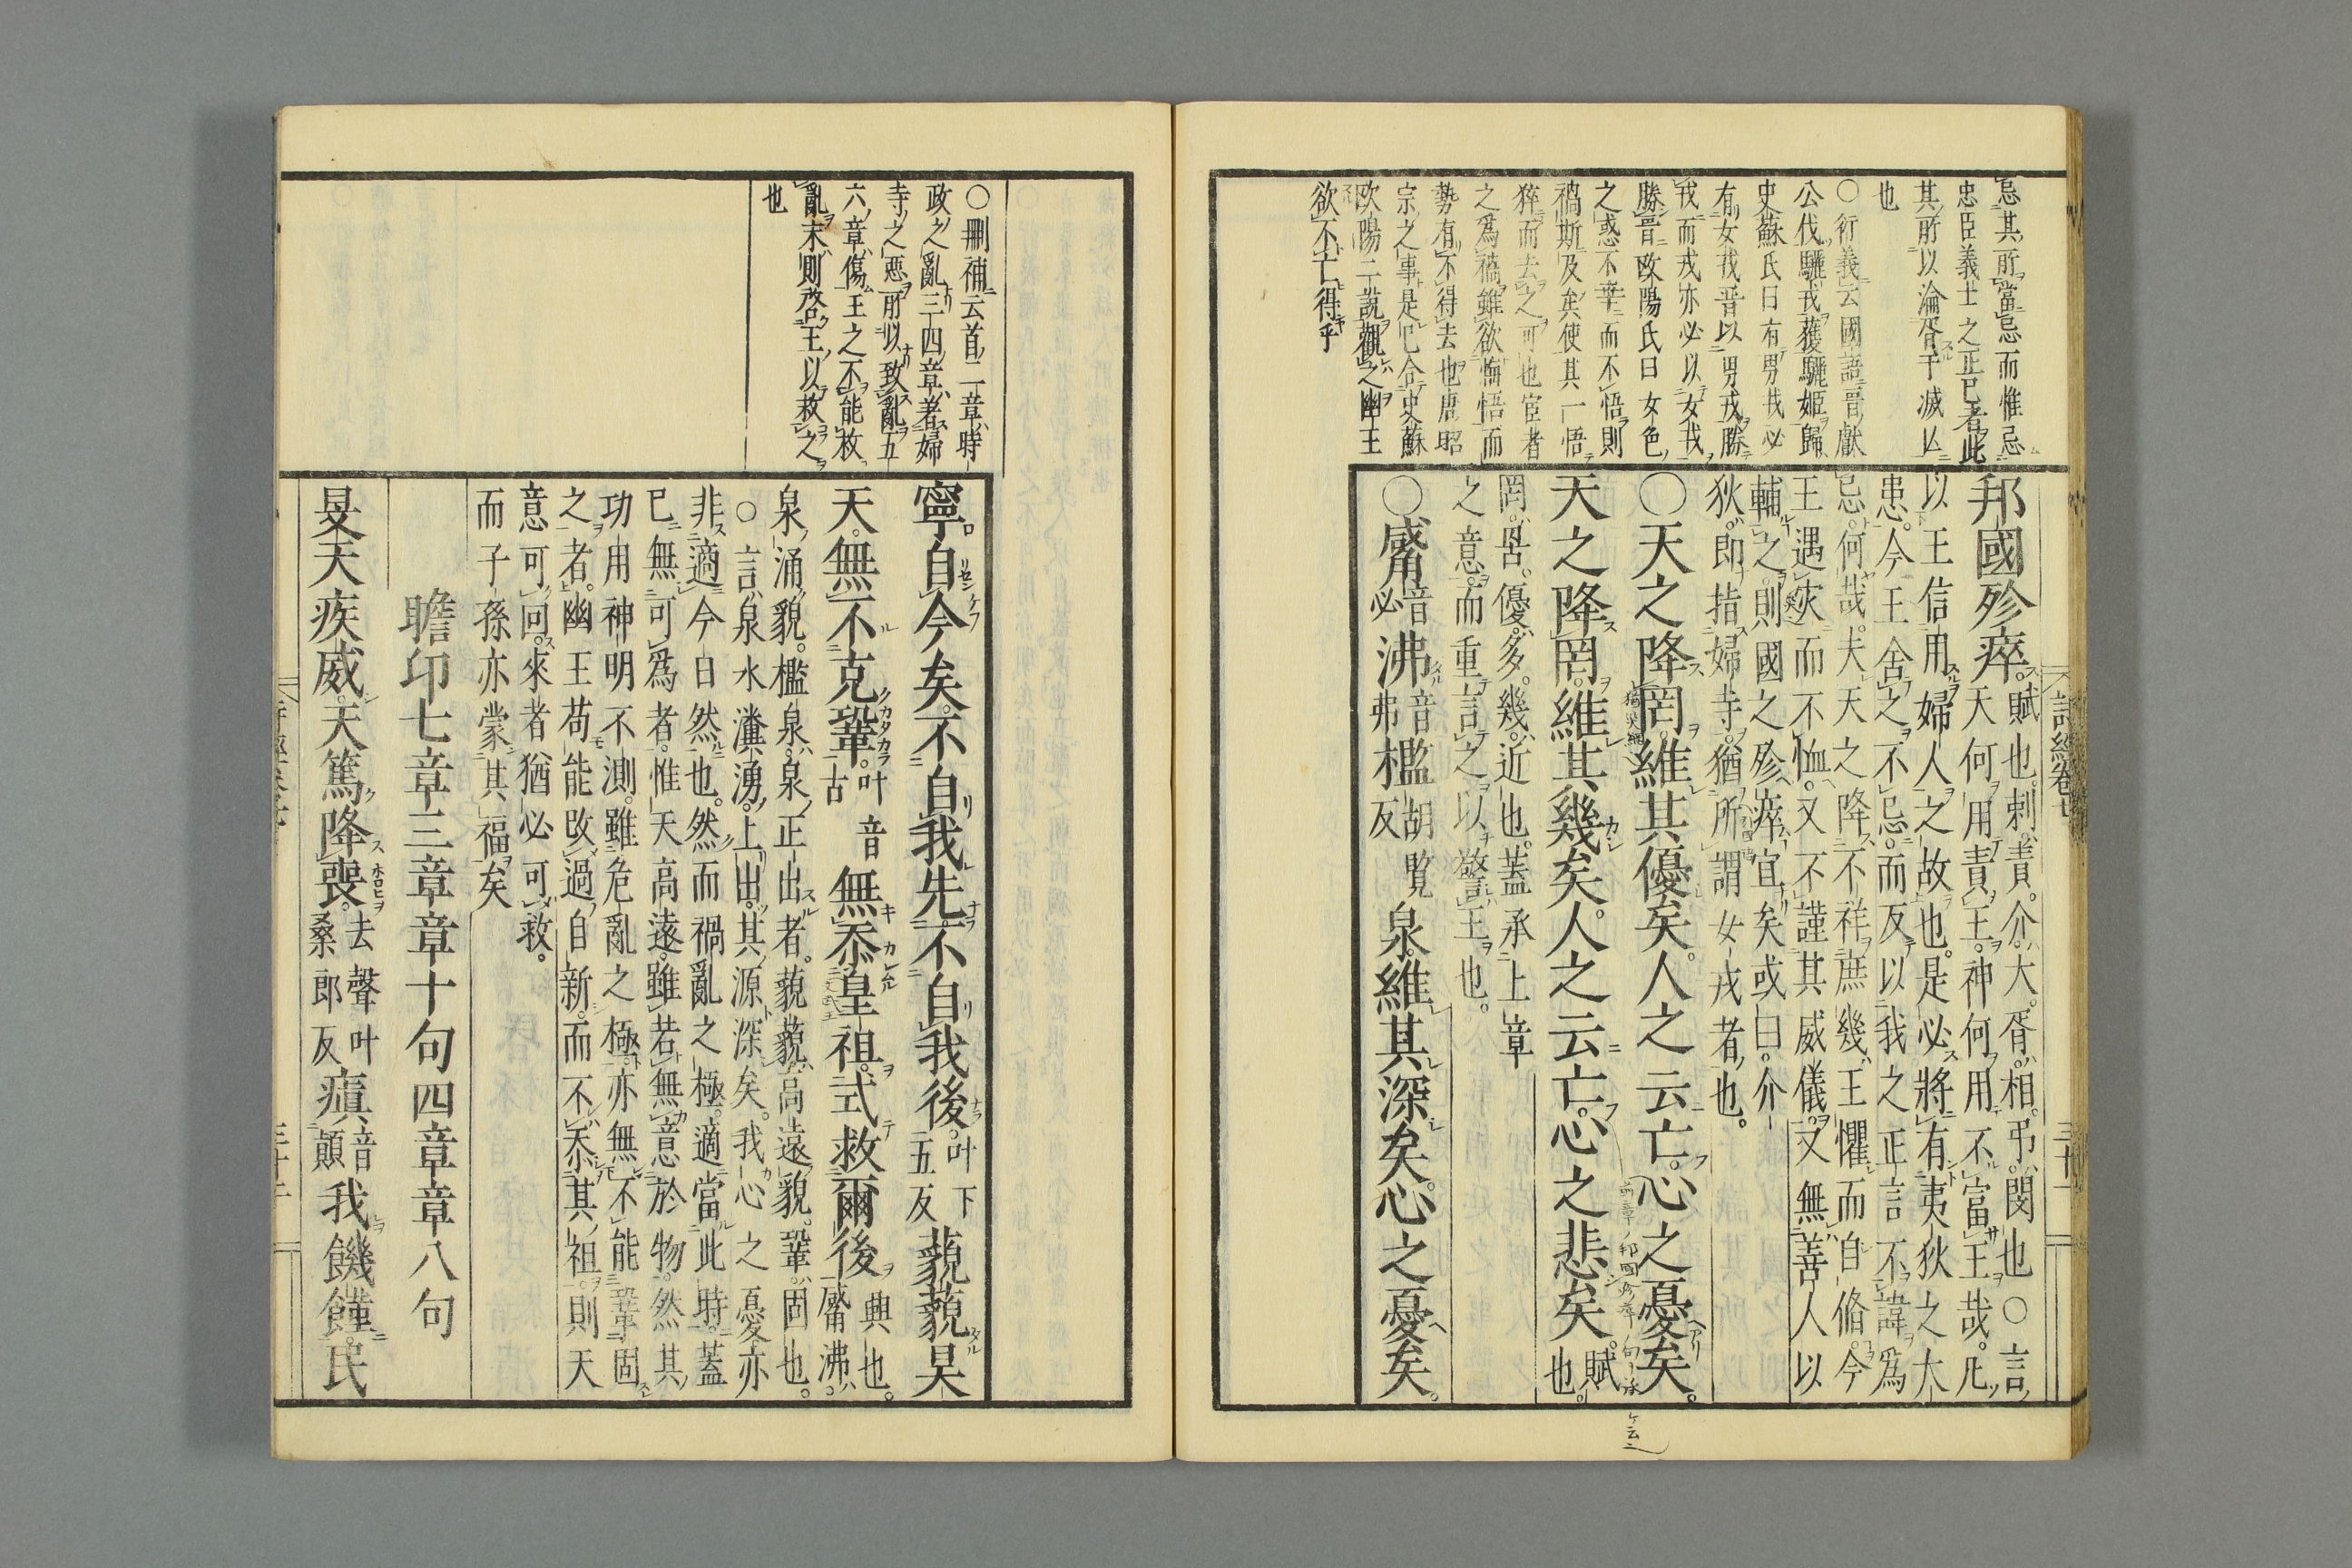 忌其所當忌而惟忌
忠臣義士之正已者此
其所以淪胥于滅亾
也
○衍義云國語晉獻
公伐驪戎獲驪姬歸
史蘇氏曰有男戎必
有女戎晉以男戎勝
戎而戎亦必以女戎
勝晉歐陽氏曰女色
之惑不幸而不悟則
禍斯及矣使其一悟
猝而去之可也宦者
之爲禍雖欲悔悟而
勢有不得去也唐昭
宗之事是已合史蘇
歐陽二說觀之幽王
欲不亡得乎
邦國殄瘁。賦也。刺。責。介。大。胥。相。弔。閔也○言
天何用責王。神何用不富王哉。凡
以王信用婦人之故也。是必將有夷狄之大
患。今王舍之不忌。而反以我之正言不諱爲
忌。何哉。夫天之降不祥。庶幾王懼而自脩。今
王遇災而不恤。又不謹其威儀。又無善人以
輔之。則國之殄瘁宜矣。或曰。介
狄。即指婦寺。猶所謂女戎者也。
○天之降罔。維其優矣。人之云亡。心之憂矣。
天之降罔。維其幾矣。人之云亡。心之悲矣。賦也
罔。罟。優。多。幾。近也。蓋承上章
之意。而重言之。以警王也。
○觱音必沸音弗檻胡覽反泉。維其深矣。心之憂矣。
詩經卷七
三十一
○刪補云首二章時
政之亂三四章者婦
寺之惡所以致亂五
六章傷王之不能救
亂末則啓王以救之
也
寧自今矣。不自我先。不自我後。叶下五反藐藐昊
天。無不克鞏。叶音古無忝皇祖。式救爾後。興也。觱沸。
泉涌貌。檻泉。泉正出者。藐藐。高遠貌。鞏。固也。
○言泉水瀵湧。上出。其源深矣。我心之憂亦
非適今日然也。然而禍亂之極。適當此時。蓋
已無可爲者。惟天高遠。雖若無意於物。然其
功用神明不測。雖危亂之極。亦無不能鞏固
之者。幽王苟能改過自新。而不忝其祖。則天
意可回。來者猶必可救。
而子孫亦蒙其福矣
瞻卬七章三章章十句四章章八句
旻天疾威。天篤降喪。去聲叶桑郎反瘨音顚我饑饉。民